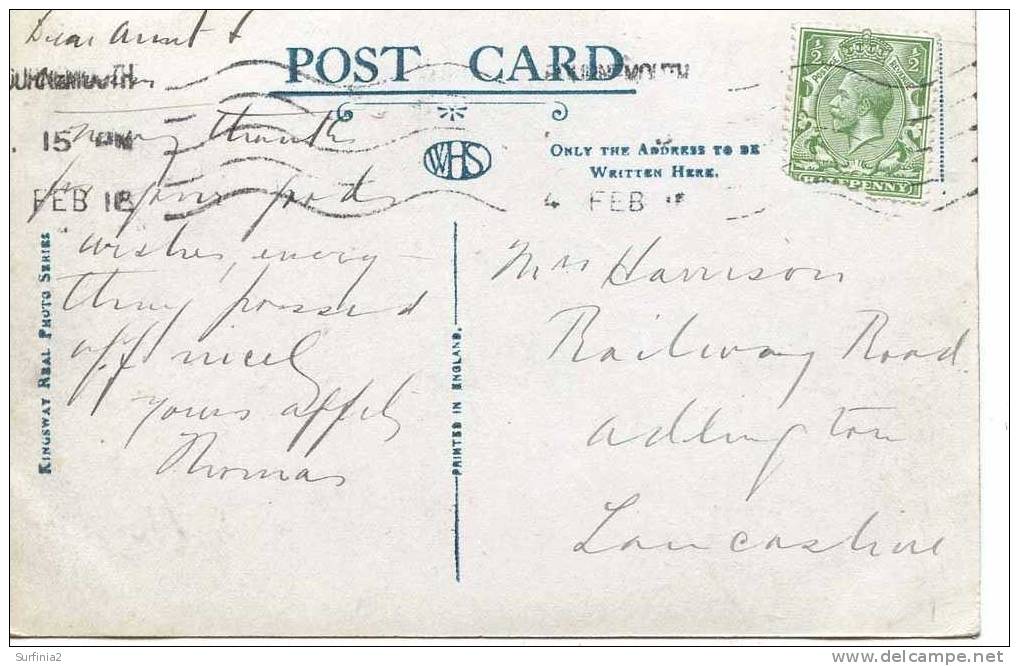 Dear Aunt &
POST CARD
BOURNEMOUTH
BOURNEMOUTH
15 PM
FEB 18
4 FEB 18
½ ½
POSTAGE REVENUE
HALFPENNY
WHS
ONLY THE ADDRESS TO BE
WRITTEN HERE.
many thanks
for your good
wishes, every
thing passed
off nicely
yours affly
Thomas
KINGSWAY REAL PHOTO SERIES
PRINTED IN ENGLAND.
Mrs Harrison
Railway Road
Adlington
Lancashire
Surfinia2
delcampe.net